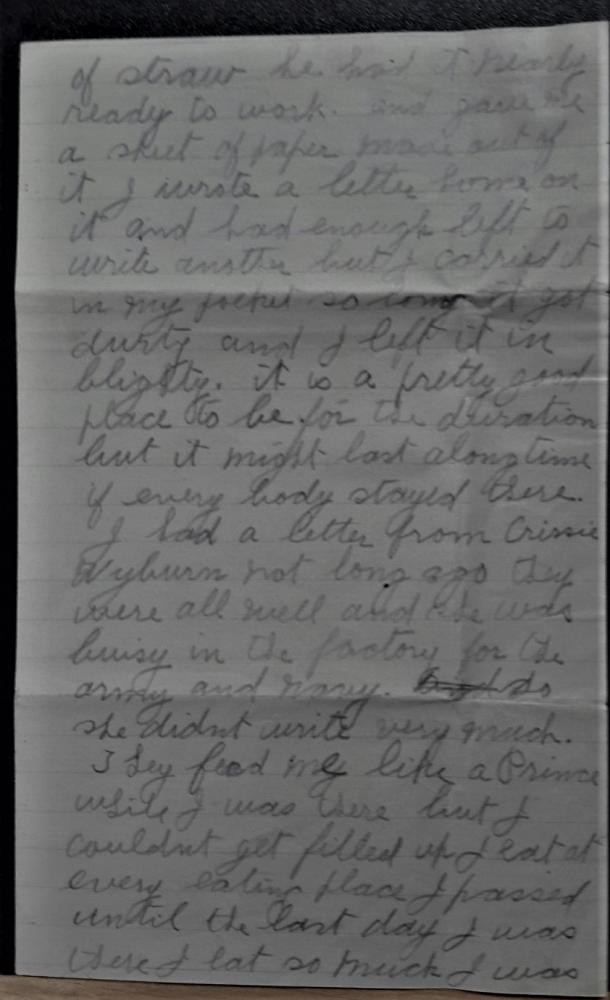 of straw he had it nearly
ready to work. and gave me
a sheet of paper made out of
it I wrote a letter home on
it and had enough left to
write another but I carried it
in my pocket so long it got
durty and I left it in
blighty. it is a pretty good
place to be for the duration
but it might last alongtime
if every body stayed there.
I had a letter from Crissie
Wyburn not long ago they
were all well and she was
buisy in the factory for the
army and navy. so
she didnt write very much.
They feed me like a Prince
while I was there but I
couldnt get filled up I eat at
every eating place I passed
until the last day I was
there I eat so much I was